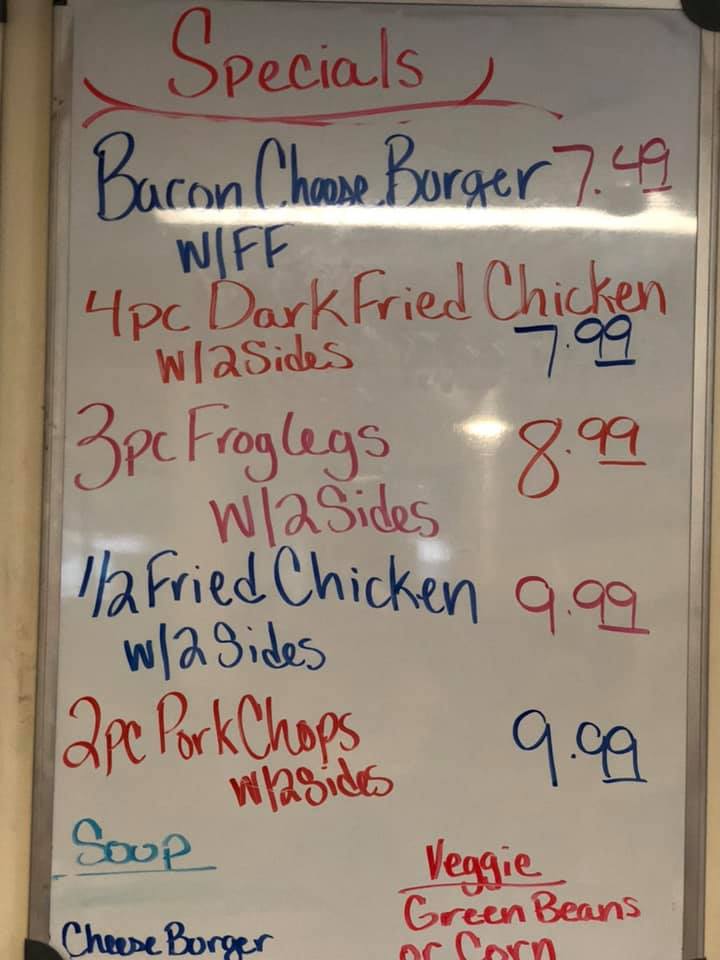 Specials
Bacon Cheese Burger 7.49
W/FF
4pc Dark Fried Chicken
W/2 Sides 7.99
3pc Frog Legs 8.99
W/2 Sides
1/2 Fried Chicken 9.99
W/2 Sides
2pc Pork Chops 9.99
W/2 Sides
Soup
Veggie
Green Beans
Cheese Burger
or Corn